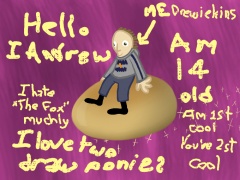 Hello
I Andrew
ME Drewickins
Am
14
old
I hate
"The Fox"
muchly
Am 1st
cool
You're 2st
Cool
I love two
draw ponies